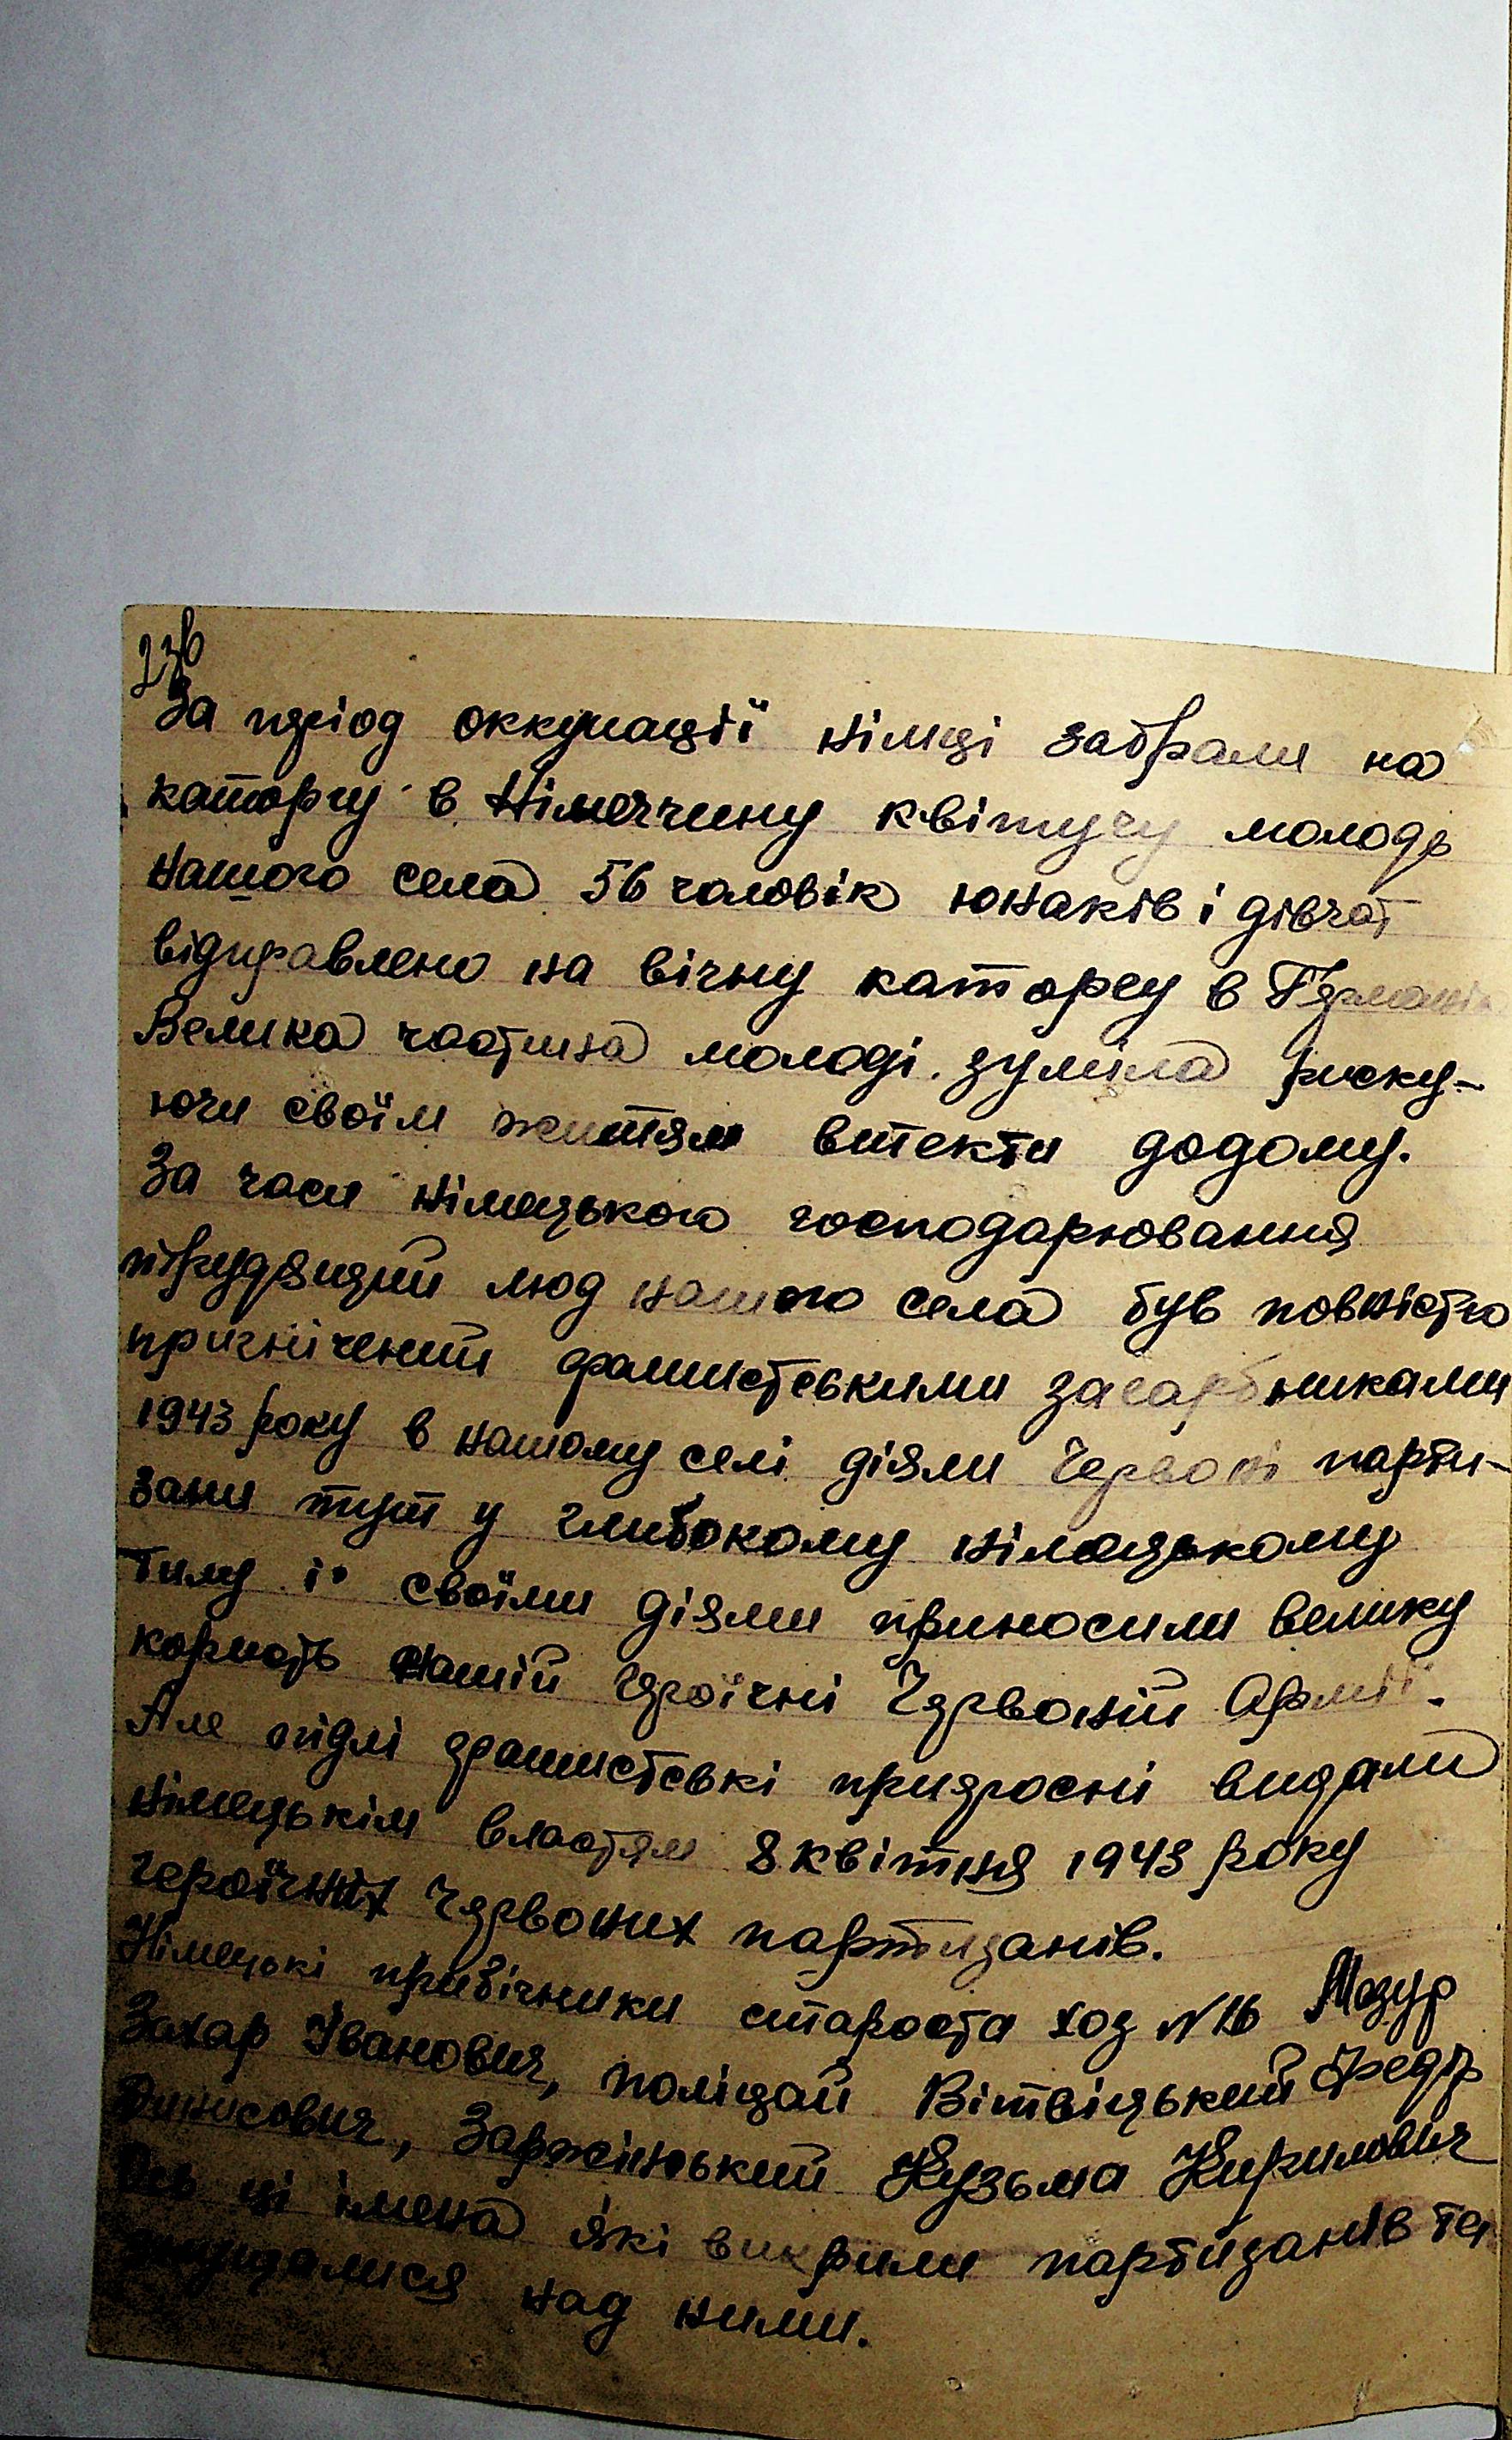 23в
За період оккупації німці забрали на
каторгу в Німеччину квітучу молодь
нашого села 56 чоловік юнаків і дівчат
відправлено на вічну каторгу в Германію
Велика частина молоді зуміла риску-
ючи своїм життям втекти додому.
За часи німецького господарювання
трудящий люд нашого села був повністю
пригнічений фашистськими загарбниками
1943 року в нашому селі діяли Червоні парти-
зани тут у глибокому німецькому
тилу і своїми діями приносили велику
користь нашій героїчні Червоній Армії.
Але підлі фашистські придросні видали
німецькім властям 8 квітня 1943 року
героїчних Червоних партизанів.
Німецькі прибічники староста хоз N 16 Мазур
Захар Іванович, поліцай Вітвіцький Федір
Динисович, Заржіцький Кузьма Кирилович
Ось ці імена які викрили партизанів та
знущалися над ними.